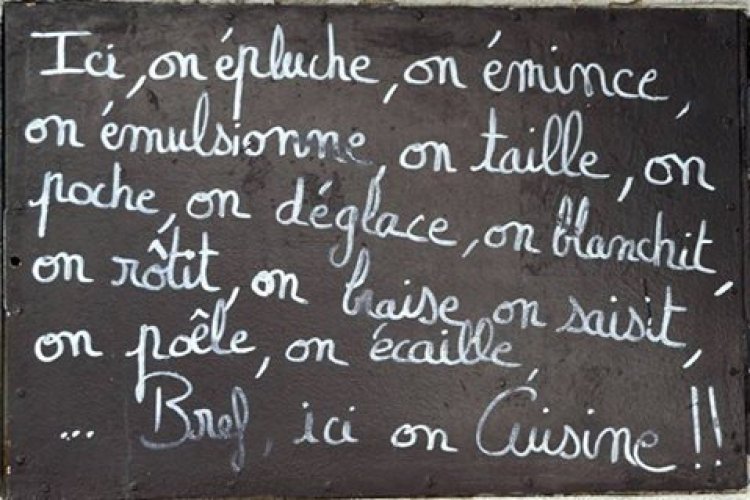 Ici, on épluche, on émince,
on émulsionne, on taille, on
poche, on déglace, on blanchit,
on rôtit, on braise, on saisit,
on poêle, on écaille,
... Bref, ici on Cuisine !!